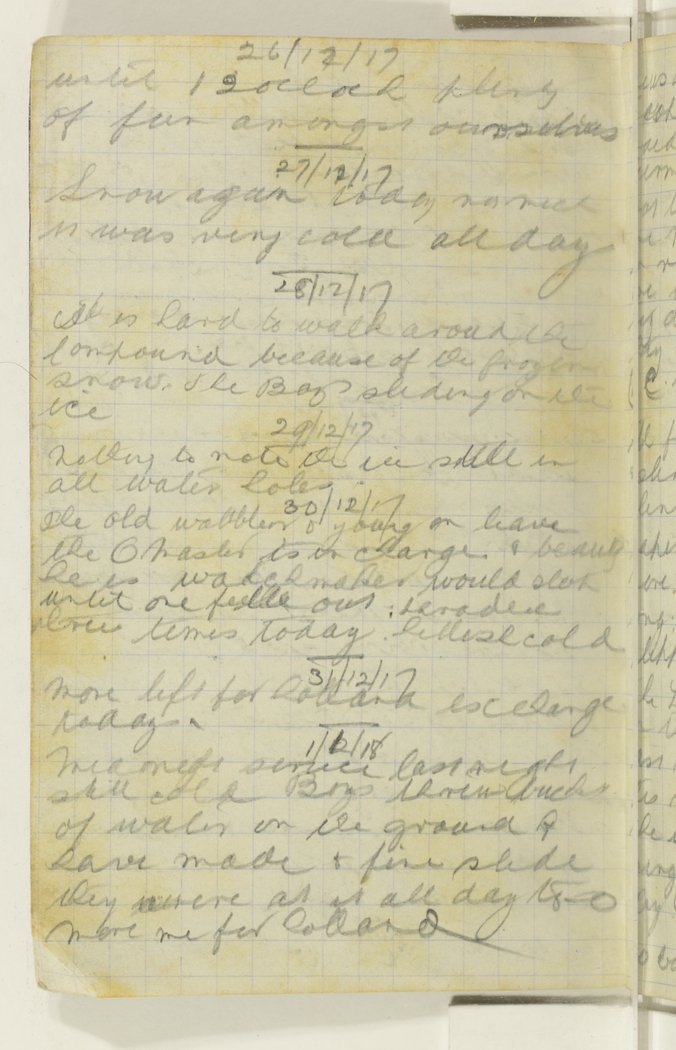 26/12/17
until 12 oclock plenty
of fun amongst ourselves
27/12/17
Snow again today
it was very cold all day
28/12/17
It is hard to walk around the
Compound because of the frozen
snow. The Boys sliding on the
ice
29/12/17
nothing to note the ice still in
all water holes
30/12/17
The old & young on leave
the is in charge. &
he is watchmaker would
until one out
three times today. cold
31/12/17
more left for Holland exchange
today.
1/12/18
Midnight service last night
still cold Boys threw
of water on the ground &
have made & fine slide
they were at it all day
more for Holland